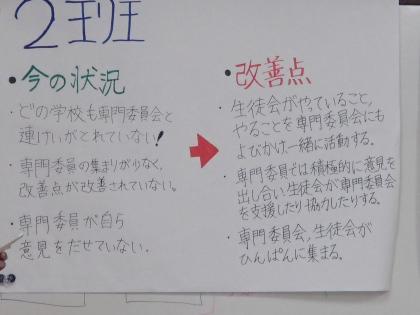 2班
・今の状況
・どの学校も専門委員会と
連けいがとれていない!
・専門委員の集まりが少なく、
改善点が改善されていない。
・専門委員が自ら
意見をだせていない。
・改善点
・生徒会がやっていること,
やることを専門委員会にも
よびかけ一緒に活動する。
・専門委員では積極的に意見を
出し合い,生徒会が専門委員会
を支援したり協力したりする。
・専門委員会,生徒会が
ひんぱんに集まる。